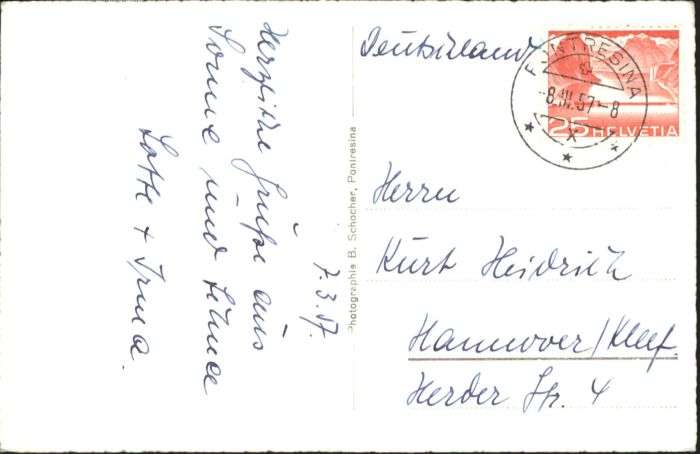 7.3.57.
Herzliche Grüße aus
Sonne und Schnee
Lotte + Irma.
Photographie B. Schocher, Pontresina
Deutschland
PONTRESINA
-8.III.57-8
X
25 HELVETIA
Herrn
Kurt Heidrich
Hannover/Kleef.
Herder Str. 4